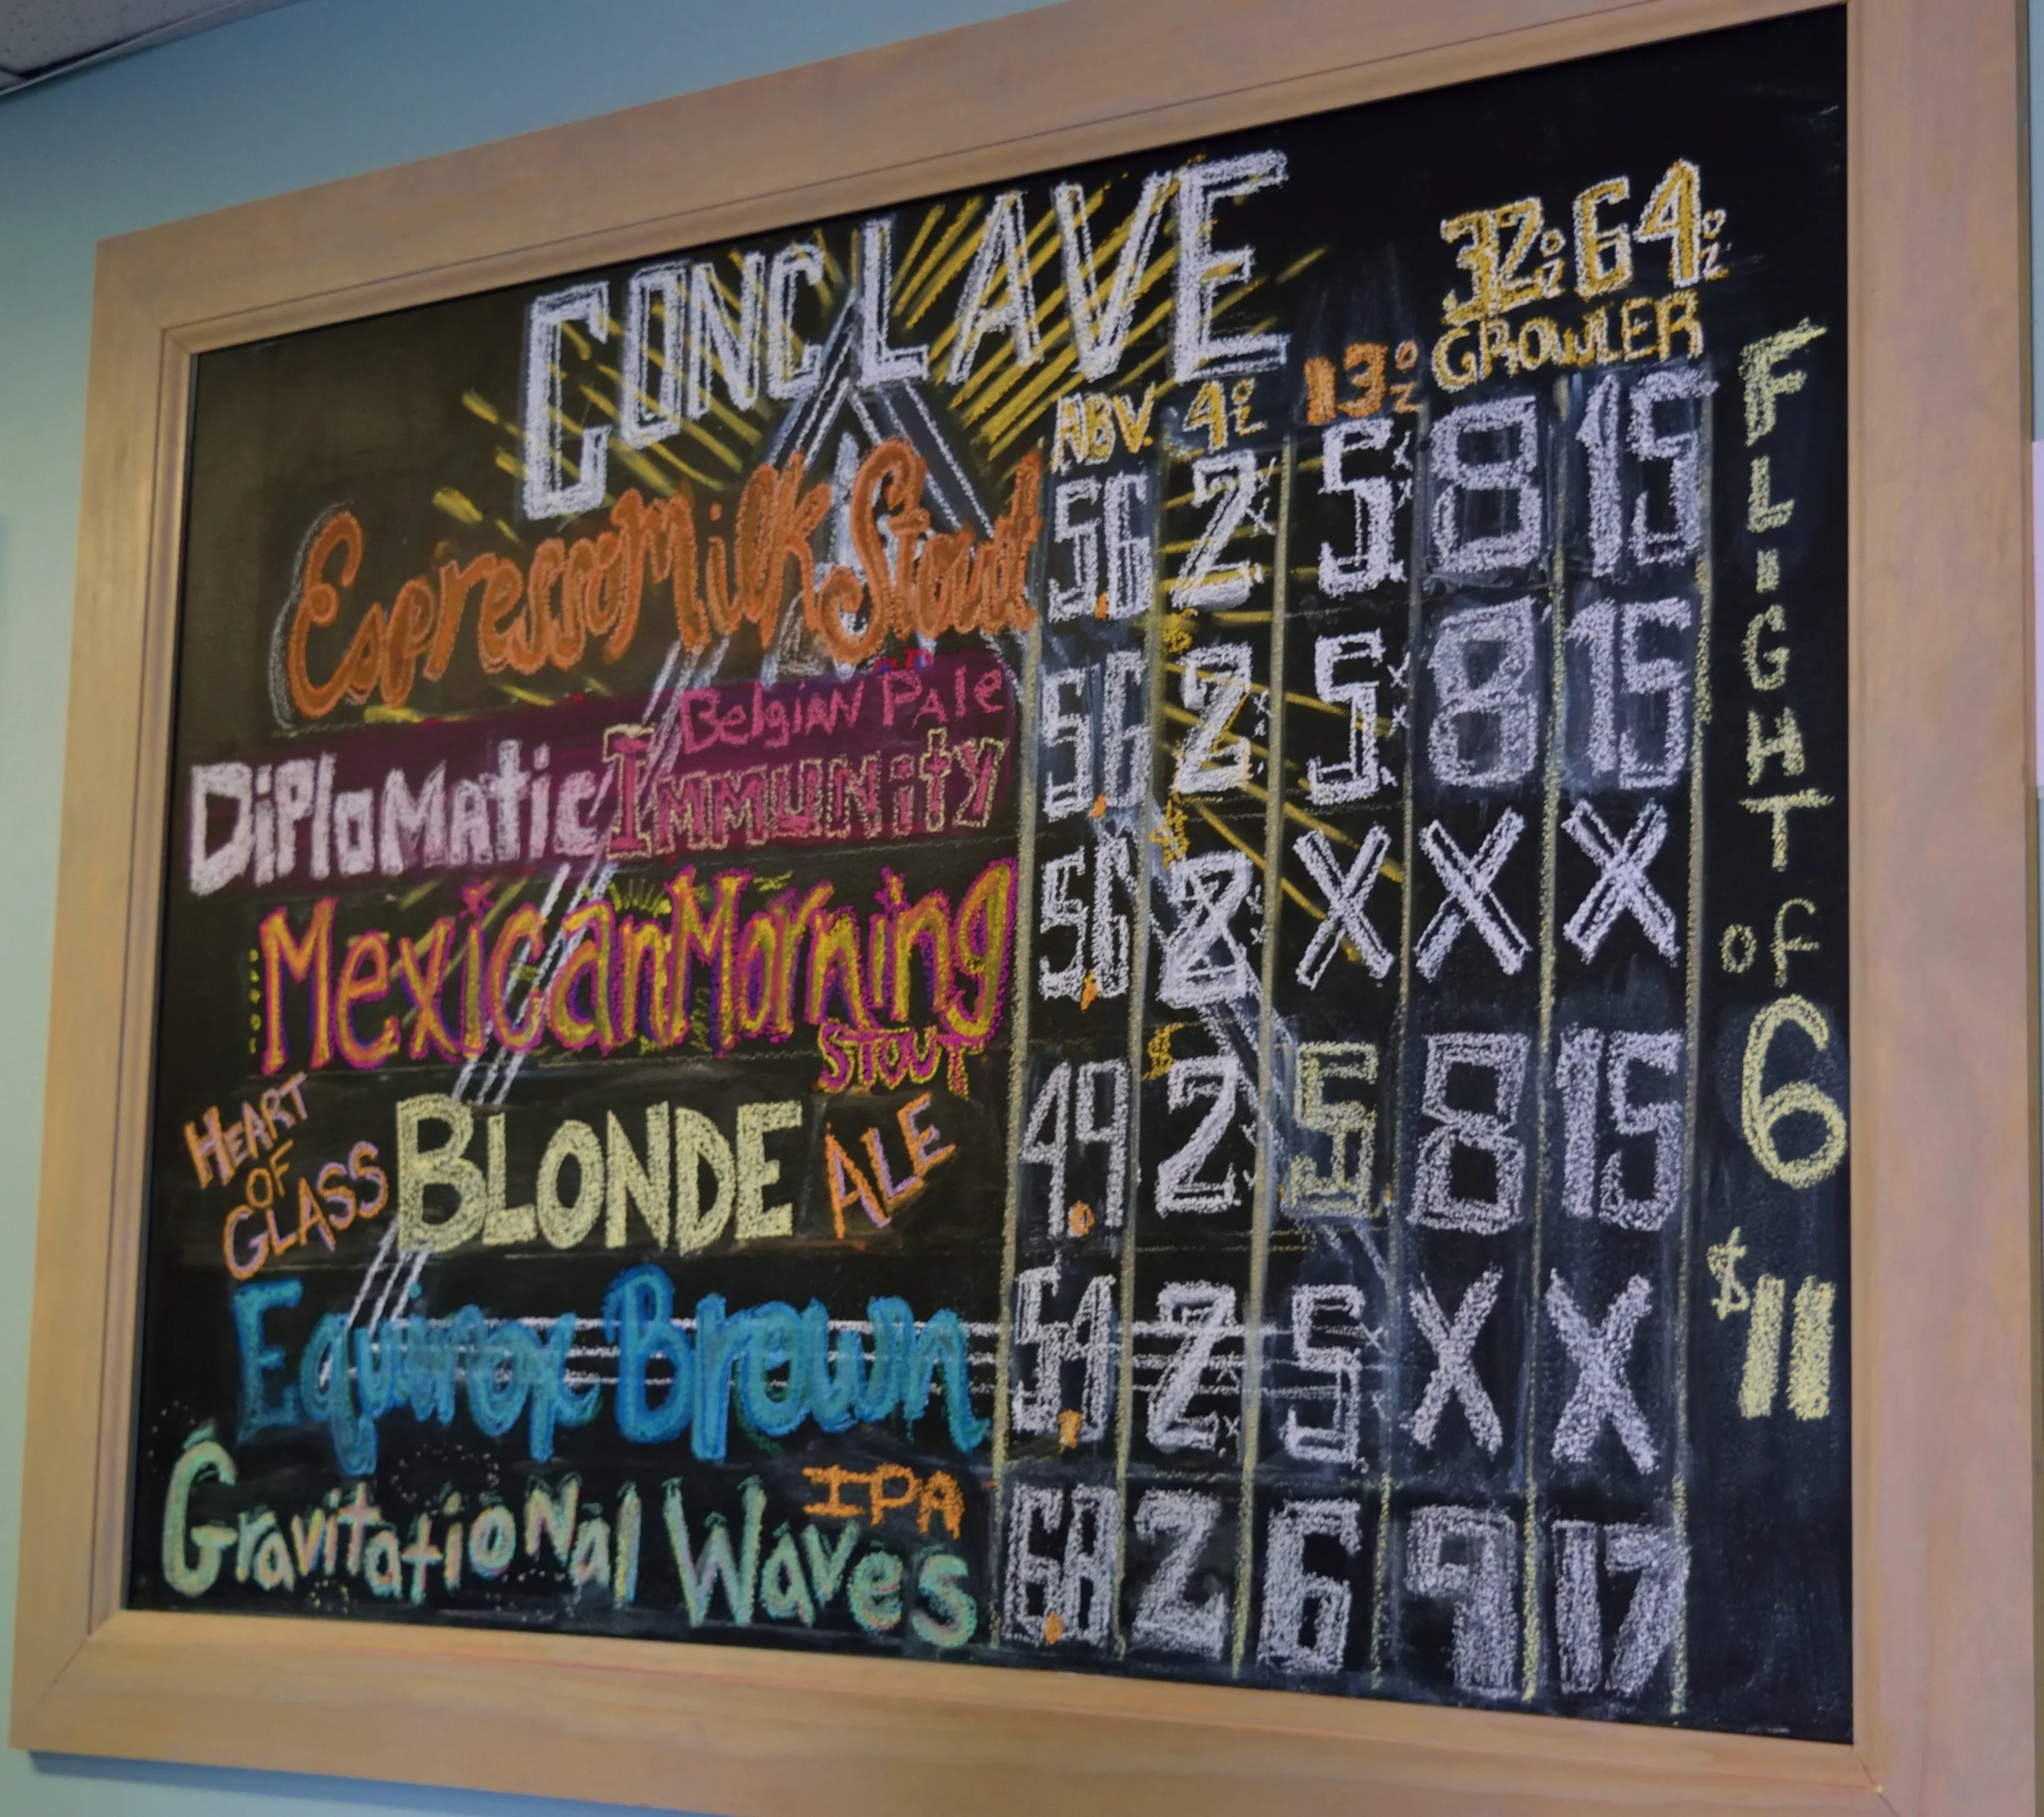 CONCLAVE
32oz 64oz
GROWLER
ABV. 4oz 13oz
Espresso Milk Stout 5.6 2 5 8 15
Belgian Pale
Diplomatic Immunity 5.6 2 5 8 15
Mexican Morning 2 X X X
STOUT
HEART OF GLASS BLONDE ALE 4.9 2 5 8 15
Equinox Brown 5.9 2 5 X X
IPA
Gravitational Waves 6.8 2 6 9 17
FLIGHT
OF
6
$11